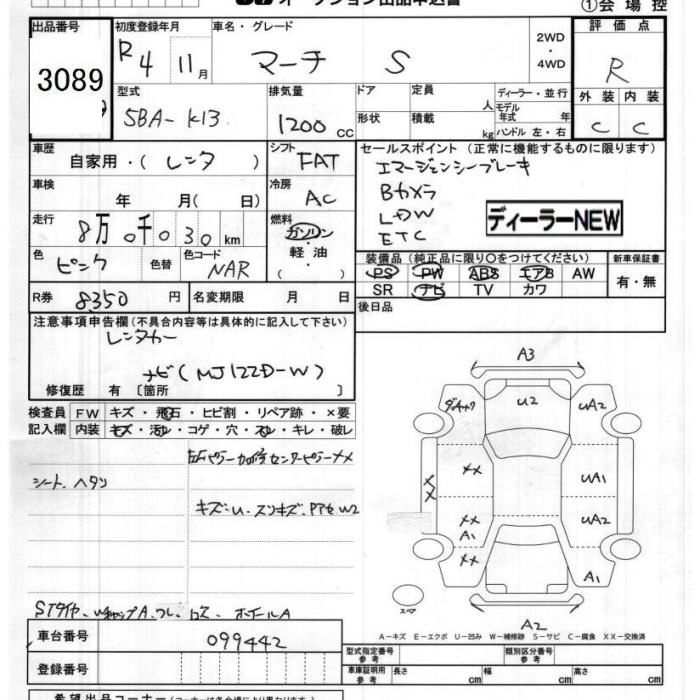 ①会場控
出品番号
3089
初度登録年月
R4 11月
車名・グレード
マーチ S
2WD
・
4WD
評価点
R
型式
5BA-K13
排気量
1200 CC
ドア
定員
人
ディーラー・並行
形状
積載
kg
モデル年式 年
ハンドル 左・右
外装 内装
C C
車歴
自家用・(レンタ)
シフト
FAT
車検
年 月(日)
冷房
AC
走行
8万0千030km
燃料
ガソリン
・
軽油
・
( )
色
ピンク
色替
色コード
NAR
セールスポイント(正常に機能するものに限ります)
エマージェンシーブレーキ
Bカメラ
LDW
ETC
ディーラーNEW
装備品(純正品に限り○をつけてください)
新車保証書
PS PW ABS エアB AW
SR ナビ TV カワ
有・無
R券 8350円
名変期限 月 日
後日品
注意事項申告欄(不具合内容等は具体的に記入して下さい)
レンタカー
ナビ(MJ122D-W)
修復歴 有〔箇所 〕
検査員記入欄
FW キズ・飛石・ヒビ割・リペア跡・×要
内装 キズ・汚レ・コゲ・穴・スレ・キレ・破レ
シート、ヘタリ
キズ・U、スリキズ、
A3
U2
UA2
XX
XX
UA1
XX
A1
UA2
XX
A1
スペア
A2
A-キズ E-エクボ U-凹み W-補修跡 S-サビ C-腐食 XX-交換済
車台番号
099442
登録番号
型式指定番号
参考
類別区分番号
参考
車庫証明用
参考
長さ cm
幅 cm
高さ cm
希望出品コーナー